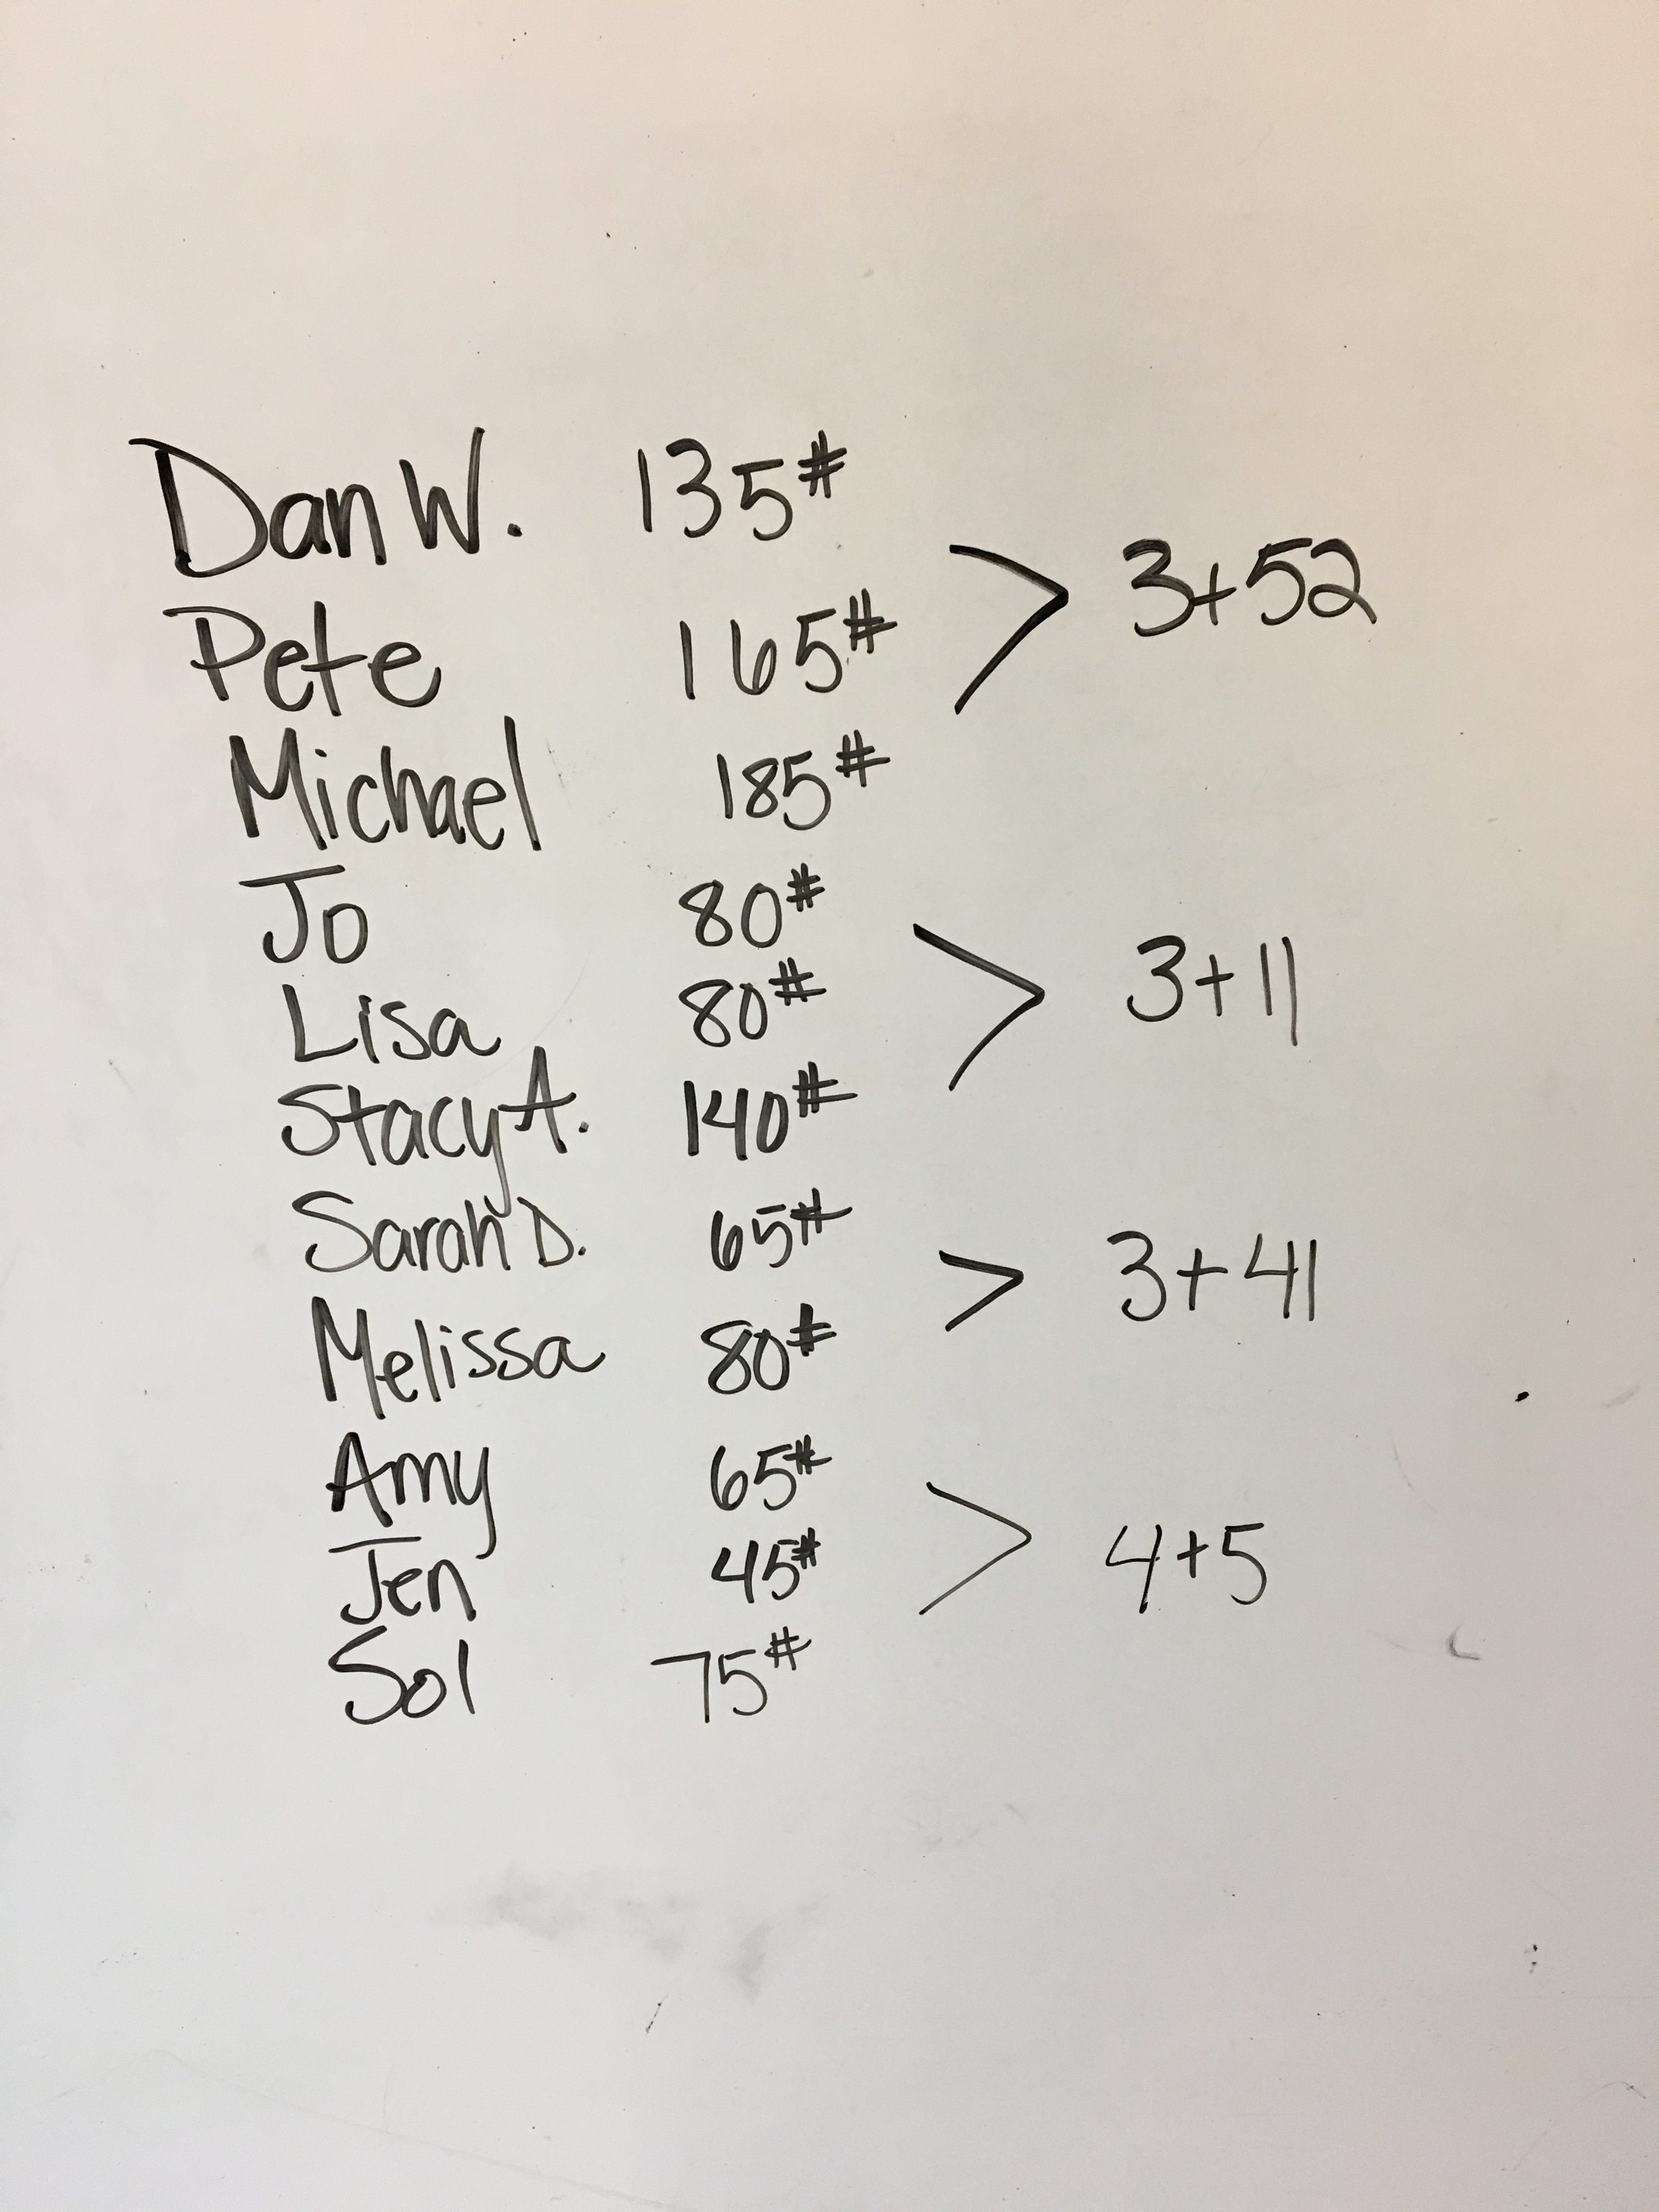 Dan W. 135#
> 3+52
Pete 165#
Michael 185#
Jo 80#
> 3+11
Lisa 80#
Stacy A. 140#
Sarah D. 65#
> 3+41
Melissa 80#
Amy 65#
> 4+5
Jen 45#
Sol 75#